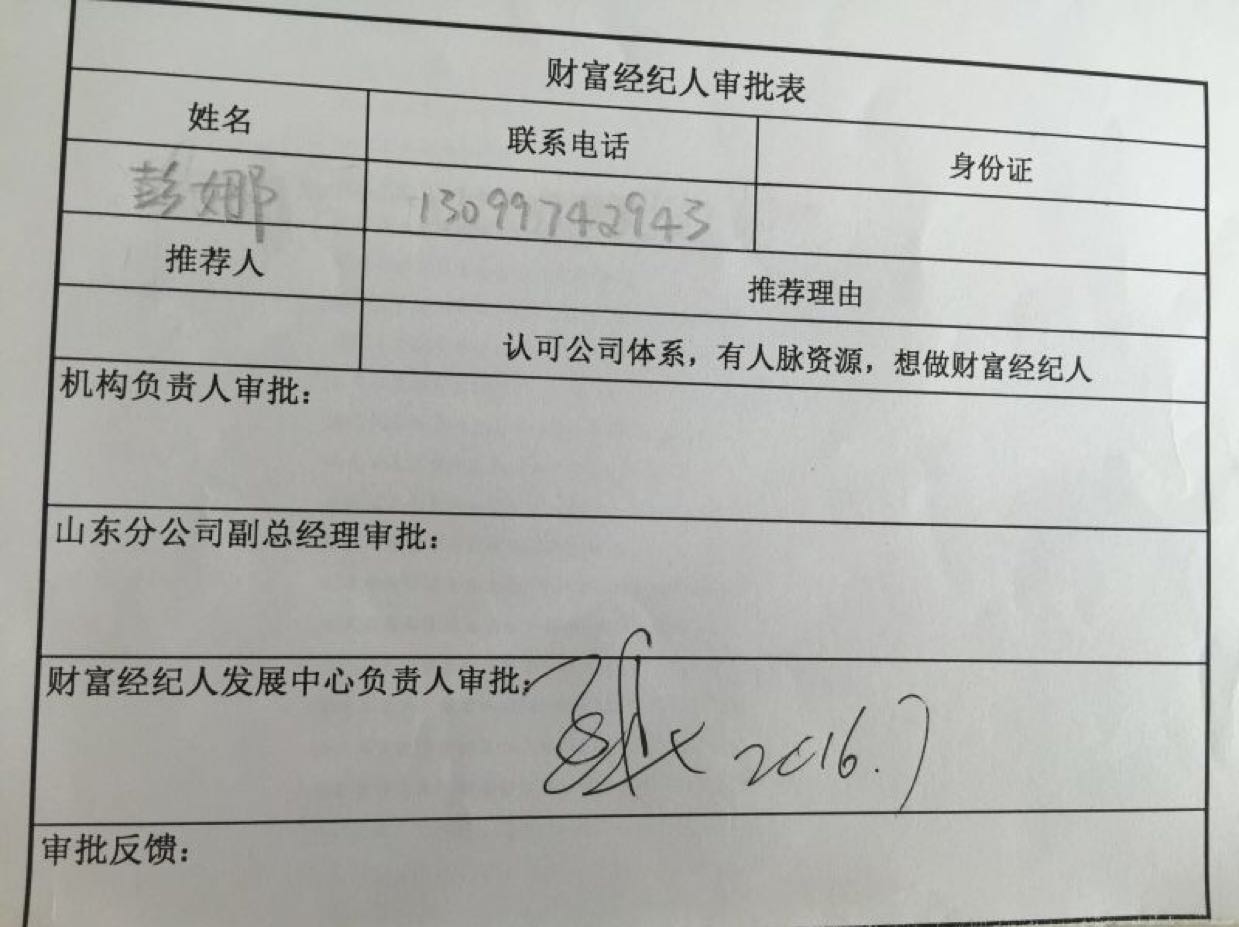 财富经纪人审批表
姓名 联系电话 身份证
彭娜 13099742943
推荐人 推荐理由
认可公司体系，有人脉资源，想做财富经纪人
机构负责人审批：
山东分公司副总经理审批：
财富经纪人发展中心负责人审批： 2016.7
审批反馈：